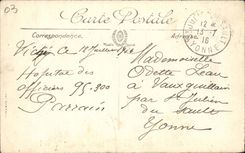 03
Carte Postale
Correspondance.
Adresse.
12
13 - 7
16
YONNE
Vichy ce 12 Juillet 1916
Hopital des
Officiers 95-300
Parrain
Mademoiselle
Odette Leau
à Vauxguillain
par St Julien
du Sault
Yonne